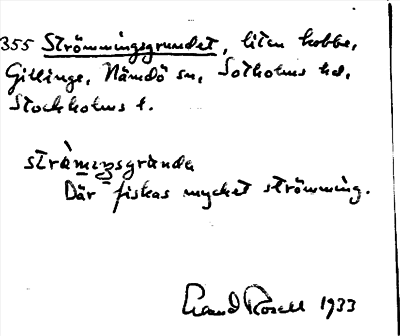 355 Strömmingsgrundet, liten kobbe,
Gillinge, Nämdö sn, Sotholms hd,
Stockholms l.
Där fiskas mycket strömming.
Erland Rosell 1933